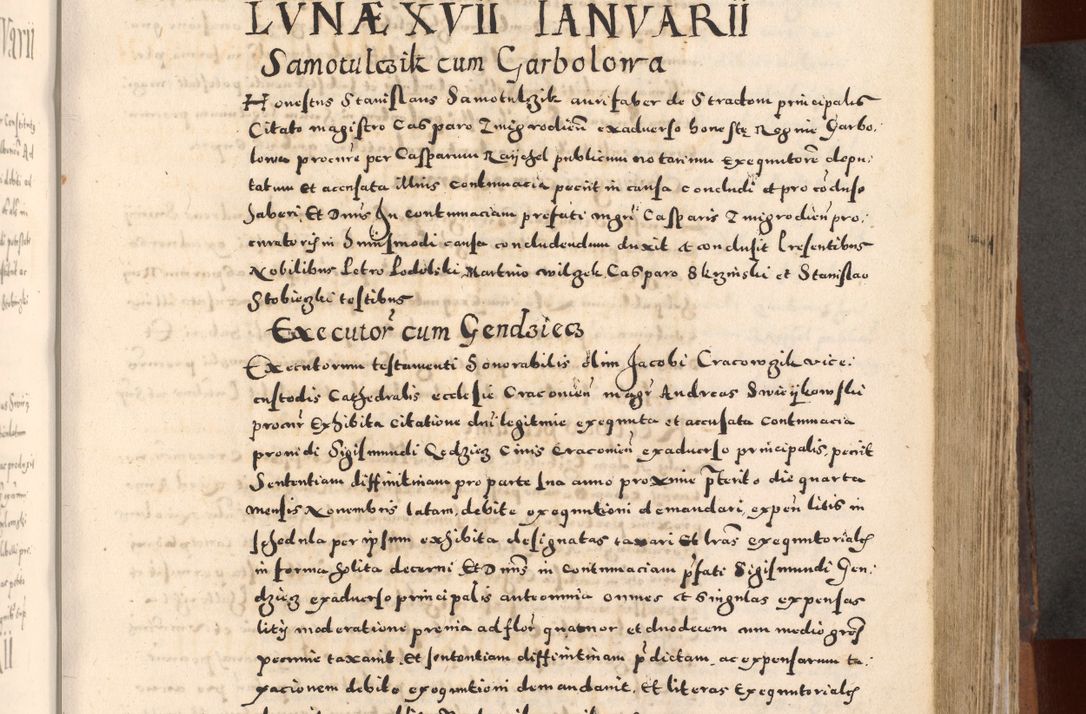 LVNÆ XVII IANVARII
Samotulczik cum Garbolowa
Honestus Stanislaus Samotulczik aurifaber de Stradom principalis
Citato magistro Casparo Zmigrodieñ exaduerso honestę Reginę Garbo-
lowa procuře per Casparum publicum notarium exequutorẽ depu-
tatum et accusata illius contumacia petiit in causa concludi et pro cõcluso
haberi, Et Dnus In contumaciam prefati mgrī Casparis Zmigrodieñ pro-
curatoris in huiusmodi causa concludendum duxit et conclusit Presentibus
Nobilibus Petro Podolski, Martino wilgek, Casparo Skrzinski et Stanislao
Stobieczki testibus
Executoř cum Gendziecz
Executorum testamenti honorabilis olim Jacobi Cracowczik vice-
custodis Cathedralis ecclesie Cracouieñ magř Andreas Swieijkowski
procuř Exhibita Citatione dni legitime exequuta et accusata contumacia
prouidi Sigismundi Gędziecz Ciuis Cracouieñ exaduerso principalis, petiit
Sententiam diffinitiuam pro parte sua anno proxime pterito die quarta
mensis Nouembris latam, debite exequutioni demandari, expeñ litis in
schedula per ipsum exhibita designatas taxari Et lras exequutoriales
in forma solita decerni Et Dnus in contumaciam pfati Sigismundi Gen-
dziecz exaduerso principalis anteomnia omnes et singulas expensas
litis moderatione preuia ad floř quatuor et duodecem cum medio gros
pecunie taxauit, Et sententiam diffinitiuam pdictam, ac expensarum ta-
xacionem debite exequutioni demandauit, Et literas Exequutoriales